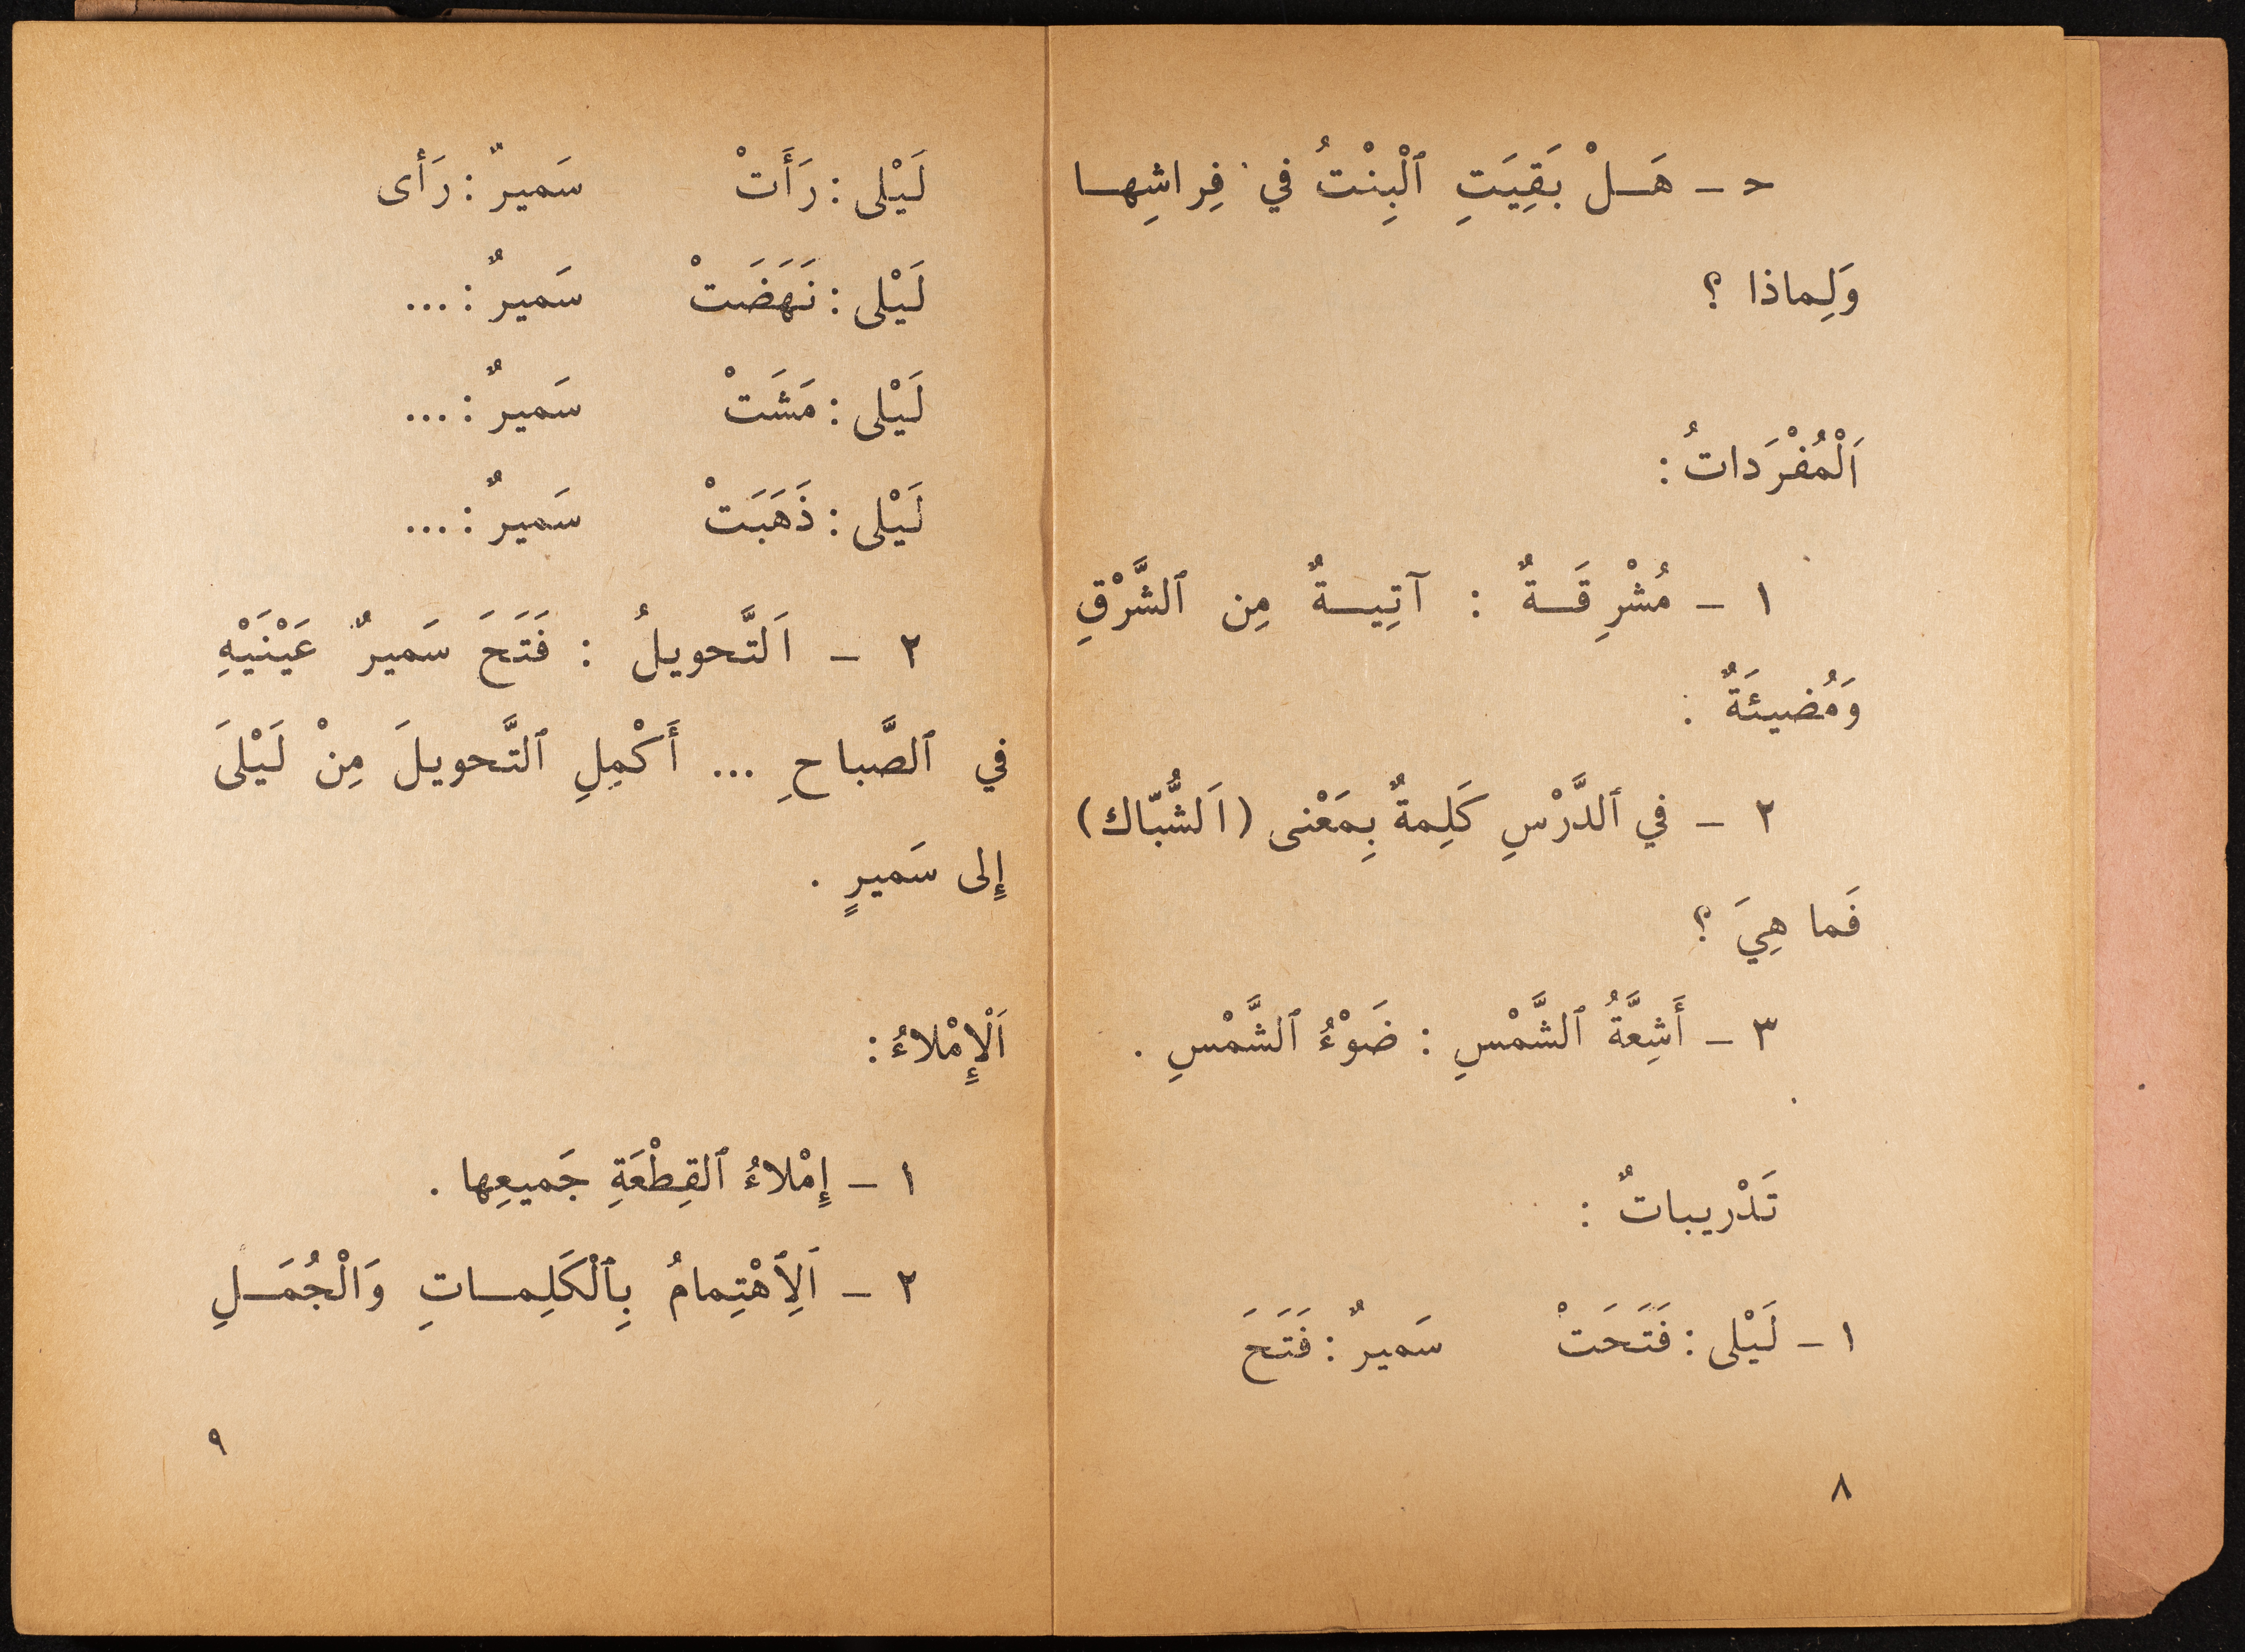 ﺣ - هَـــلْ بَقِيَتِ ٱلْبِنْتُ في فِراشِهـــا
وَلِماذا ؟
اَلْمُفْرَداتُ :
١ - مُشْرِقَـــةٌ : آتِيـــةٌ مِن ٱلشَّرْقِ
وَمُضيئَةٌ :
٢ - في ٱلدَّرْسِ كَلِمةٌ بِمَعْنى (اَلشُّبّاك)
فَما هِيَ ؟
٣ - أَشِعَّةُ ٱلشَّمْسِ : ضَوْءُ ٱلشَّمْسِ .
تَدْريباتٌ :
١ - لَيْلى : فَتَحَتْ سَميرٌ : فَتَحَ
٨
لَيْلى : رَأَتْ سَميرٌ : رَأى
لَيْلى : نَهَضَتْ سَميرٌ : ...
لَيْلى : مَشَتْ سَميرٌ : ...
لَيْلى : ذَهَبَتْ سَميرٌ : ...
٢ - اَلتَّحويلُ : فَتَحَ سَميرٌ عَيْنَيْهِ
في ٱلصَّباحِ ... أَكْمِلِ ٱلتَّحويلَ مِنْ لَيْلىَ
إِلى سَميرٍ .
اَلْإِمْلاءُ :
١ - إِمْلاءُ ٱلقِطْعَةِ جَميعِها .
٢ - اَلِٱهْتِمامُ بِٱلْكَلِمـــاتِ وَالْجُمَـــلِ
٩